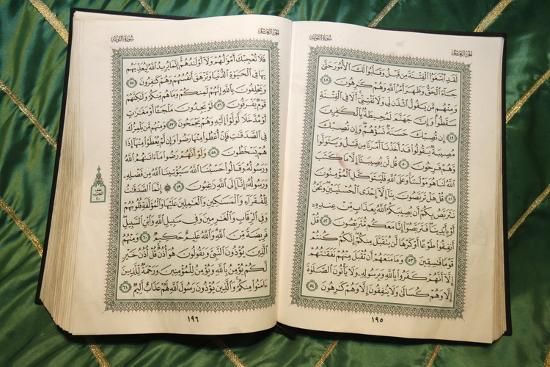 الجزء العاشر
سورة التوبة
لَقَدِ ٱبْتَغَوُا۟ ٱلْفِتْنَةَ مِن قَبْلُ وَقَلَّبُوا۟ لَكَ ٱلْأُمُورَ حَتَّىٰ
جَآءَ ٱلْحَقُّ وَظَهَرَ أَمْرُ ٱللَّهِ وَهُمْ كَٰرِهُونَ ٤٨
وَمِنْهُم مَّن يَقُولُ ٱئْذَن لِّى وَلَا تَفْتِنِّىٓ أَلَا فِى ٱلْفِتْنَةِ
سَقَطُوا۟ وَإِنَّ جَهَنَّمَ لَمُحِيطَةٌۢ بِٱلْكَٰفِرِينَ
٤٩ إِن تُصِبْكَ حَسَنَةٌ تَسُؤْهُمْ وَإِن تُصِبْكَ
مُصِيبَةٌ يَقُولُوا۟ قَدْ أَخَذْنَآ أَمْرَنَا مِن قَبْلُ وَيَتَوَلَّوا۟
وَّهُمْ فَرِحُونَ ٥٠ قُل لَّن يُصِيبَنَآ إِلَّا مَا كَتَبَ
ٱللَّهُ لَنَا هُوَ مَوْلَىٰنَا وَعَلَى ٱللَّهِ فَلْيَتَوَكَّلِ ٱلْمُؤْمِنُونَ
٥١ قُلْ هَلْ تَرَبَّصُونَ بِنَآ إِلَّآ إِحْدَى ٱلْحُسْنَيَيْنِ وَنَحْنُ
نَتَرَبَّصُ بِكُمْ أَن يُصِيبَكُمُ ٱللَّهُ بِعَذَابٍ مِّنْ عِندِهِۦٓ
أَوْ بِأَيْدِينَا فَتَرَبَّصُوٓا۟ إِنَّا مَعَكُم مُّتَرَبِّصُونَ ٥٢ قُلْ
أَنفِقُوا۟ طَوْعًا أَوْ كَرْهًا لَّن يُتَقَبَّلَ مِنكُمْ إِنَّكُمْ كُنتُمْ
قَوْمًا فَٰسِقِينَ ٥٣ وَمَا مَنَعَهُمْ أَن تُقْبَلَ مِنْهُمْ نَفَقَٰتُهُمْ
إِلَّآ أَنَّهُمْ كَفَرُوا۟ بِٱللَّهِ وَبِرَسُولِهِۦ وَلَا يَأْتُونَ ٱلصَّلَوٰةَ
إِلَّا وَهُمْ كُسَالَىٰ وَلَا يُنفِقُونَ إِلَّا وَهُمْ كَٰرِهُونَ ٥٤
١٩٥
الجزء العاشر
سورة التوبة
فَلَا تُعْجِبْكَ أَمْوَٰلُهُمْ وَلَآ أَوْلَٰدُهُمْ إِنَّمَا يُرِيدُ ٱللَّهُ لِيُعَذِّبَهُم
بِهَا فِى ٱلْحَيَوٰةِ ٱلدُّنْيَا وَتَزْهَقَ أَنفُسُهُمْ وَهُمْ كَٰفِرُونَ ٥٥
وَيَحْلِفُونَ بِٱللَّهِ إِنَّهُمْ لَمِنكُمْ وَمَا هُم مِّنكُمْ وَلَٰكِنَّهُمْ
قَوْمٌ يَفْرَقُونَ ٥٦ لَوْ يَجِدُونَ مَلْجَـًٔا أَوْ مَغَٰرَٰتٍ
أَوْ مُدَّخَلًا لَّوَلَّوْا۟ إِلَيْهِ وَهُمْ يَجْمَحُونَ ٥٧ وَمِنْهُم مَّن يَلْمِزُكَ
فِى ٱلصَّدَقَٰتِ فَإِنْ أُعْطُوا۟ مِنْهَا رَضُوا۟ وَإِن لَّمْ يُعْطَوْا۟ مِنْهَآ إِذَا
هُمْ يَسْخَطُونَ ٥٨ وَلَوْ أَنَّهُمْ رَضُوا۟ مَآ ءَاتَىٰهُمُ ٱللَّهُ
وَرَسُولُهُۥ وَقَالُوا۟ حَسْبُنَا ٱللَّهُ سَيُؤْتِينَا ٱللَّهُ مِن فَضْلِهِۦ
وَرَسُولُهُۥٓ إِنَّآ إِلَى ٱللَّهِ رَٰغِبُونَ ٥٩ إِنَّمَا ٱلصَّدَقَٰتُ
لِلْفُقَرَآءِ وَٱلْمَسَٰكِينِ وَٱلْعَٰمِلِينَ عَلَيْهَا وَٱلْمُؤَلَّفَةِ قُلُوبُهُمْ
وَفِى ٱلرِّقَابِ وَٱلْغَٰرِمِينَ وَفِى سَبِيلِ ٱللَّهِ وَٱبْنِ ٱلسَّبِيلِ
فَرِيضَةً مِّنَ ٱللَّهِ وَٱللَّهُ عَلِيمٌ حَكِيمٌ ٦٠ وَمِنْهُمُ
ٱلَّذِينَ يُؤْذُونَ ٱلنَّبِىَّ وَيَقُولُونَ هُوَ أُذُنٌ قُلْ أُذُنُ خَيْرٍ
لَّكُمْ يُؤْمِنُ بِٱللَّهِ وَيُؤْمِنُ لِلْمُؤْمِنِينَ وَرَحْمَةٌ لِّلَّذِينَ
ءَامَنُوا۟ مِنكُمْ وَٱلَّذِينَ يُؤْذُونَ رَسُولَ ٱللَّهِ لَهُمْ عَذَابٌ أَلِيمٌ ٦١
١٩٦